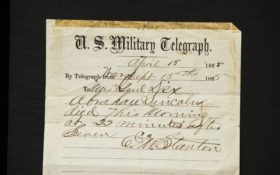 U. S. Military Telegraph.
April 15 1865
By Telegraph from 15th 1865
To Maj Genl Dix
Abraham Lincoln
died this morning
at 22 minutes after
Seven
E M Stanton